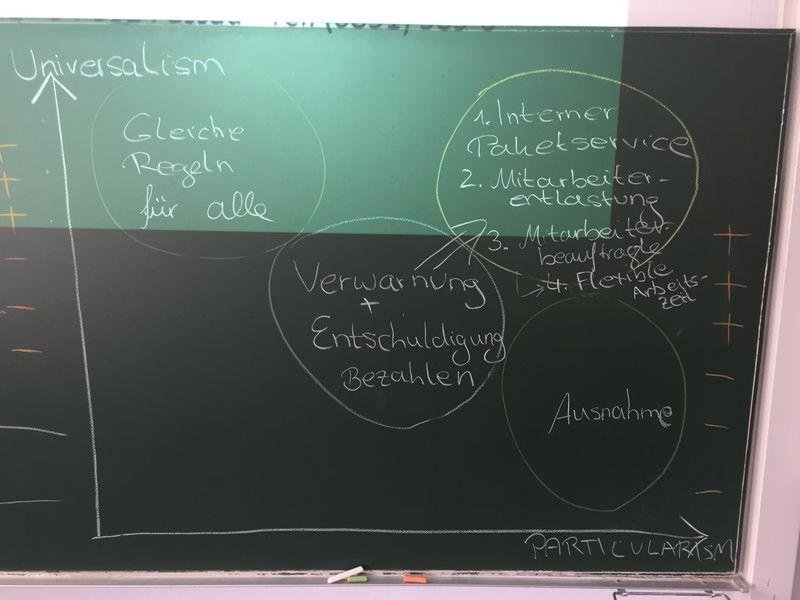 Universalism
Gleiche
Regeln
für alle
1. Interner
Paketservice
2. Mitarbeiter-
entlastung
3. Mitarbeiter-
beauftragte
↳ 4. Flexible
Arbeits-
zeit
Verwarnung
+
Entschuldigung
Bezahlen
Ausnahme
PARTICULARISM
+
+
+
-
-
-
+
+
+
-
-
-